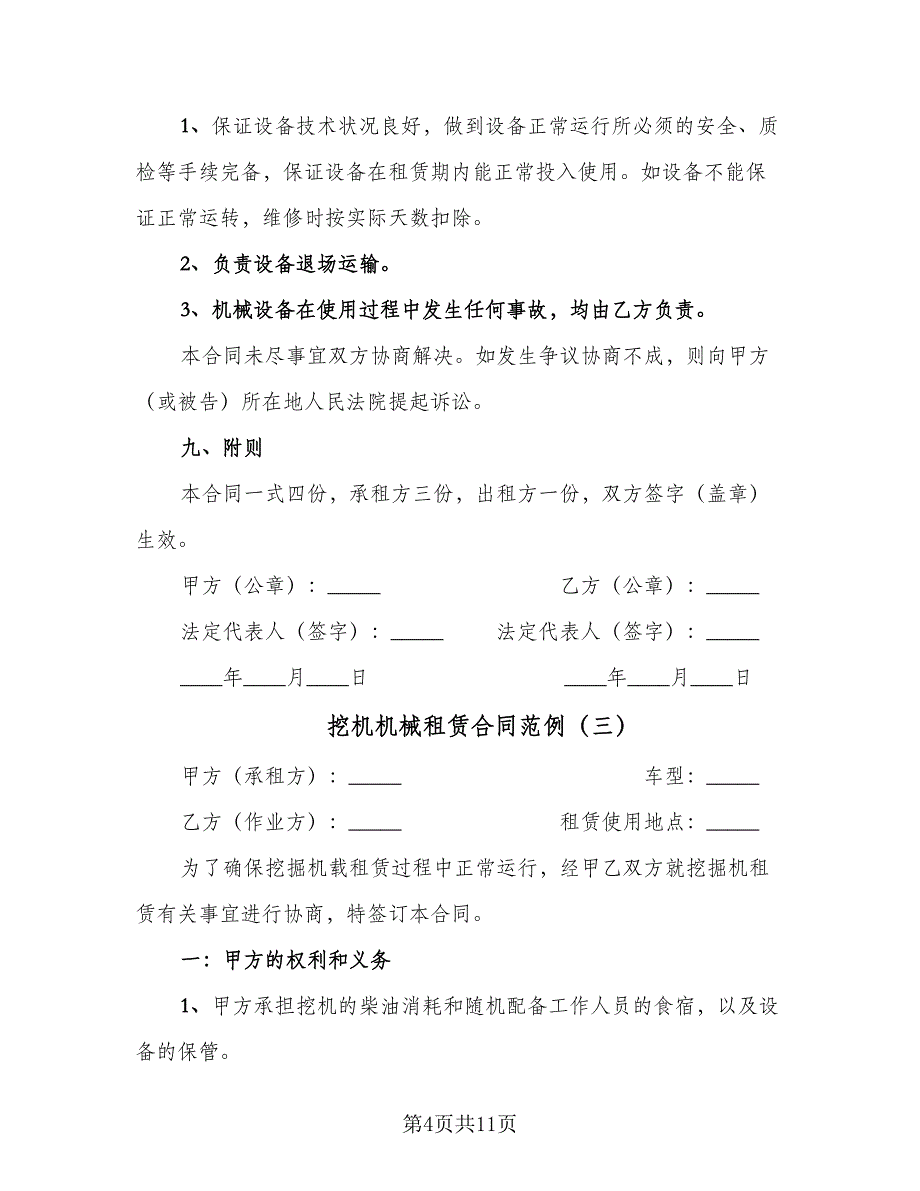 1、保证设备技术状况良好，做到设备正常运行所必须的安全、质
检等手续完备，保证设备在租赁期内能正常投入使用。如设备不能保
证正常运转，维修时按实际天数扣除。
2、负责设备退场运输。
3、机械设备在使用过程中发生任何事故，均由乙方负责。
本合同未尽事宜双方协商解决。如发生争议协商不成，则向甲方
（或被告）所在地人民法院提起诉讼。
九、附则
本合同一式四份，承租方三份，出租方一份，双方签字（盖章）
生效。
甲方（公章）：_____ 乙方（公章）：_____
法定代表人（签字）：_____ 法定代表人（签字）：_____
____年____月____日 ____年____月____日
挖机机械租赁合同范例（三）
甲方（承租方）：_____ 车型：_____
乙方（作业方）：_____ 租赁使用地点：_____
为了确保挖掘机载租赁过程中正常运行，经甲乙双方就挖掘机租
赁有关事宜进行协商，特签订本合同。
一：甲方的权利和义务
1、甲方承担挖机的柴油消耗和随机配备工作人员的食宿，以及设
备的保管。
第4页共11页